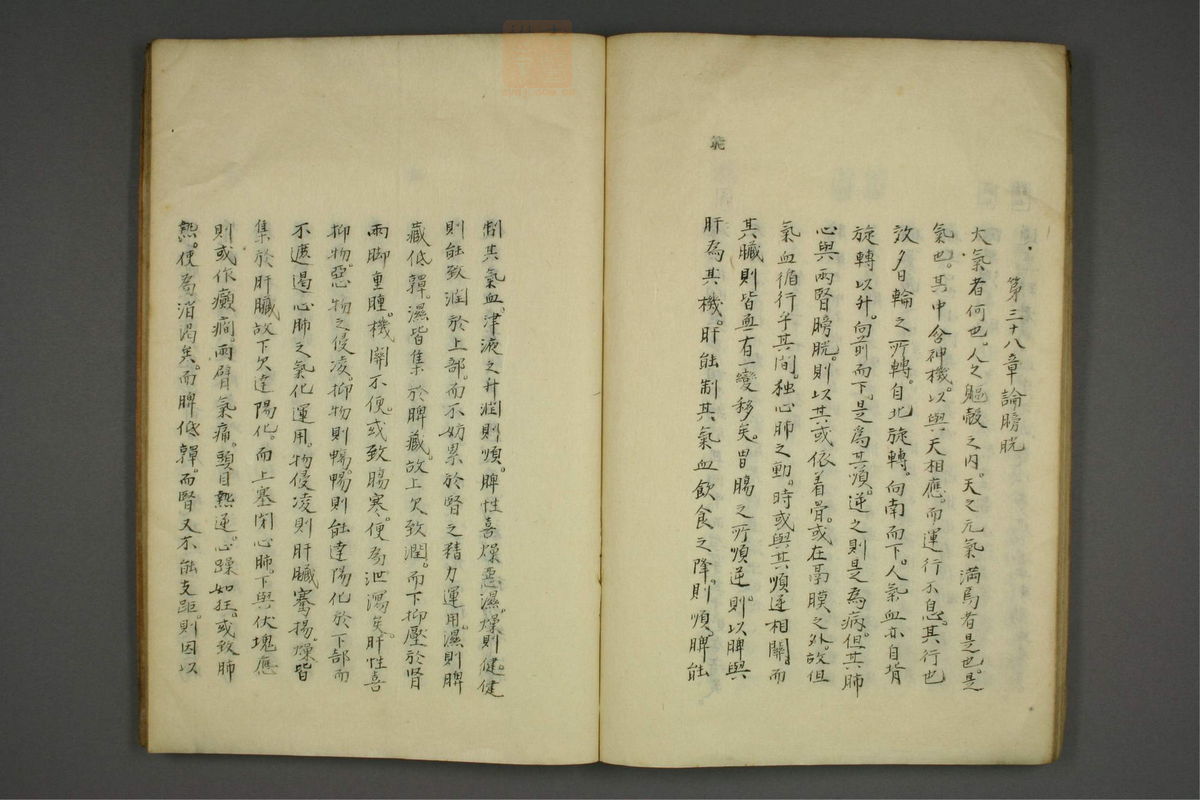 第三十八章論膀胱
大氣者何也。人之軀殼之内。天之元氣満焉者是也。是
氣也。其中含神機。以與天相應。而運行不息。其行也
效夕日輪之所轉。自北旋轉。向南而下。人氣血亦自背
旋轉以升。向前而下。是為其順。逆之則是為病。但其肺
心與兩腎膀胱。則以其或依着骨。或在鬲膜之外。故但
氣血循行乎其間。独心肺之動。時或與其順逆相關。而
其臓則皆無有一變移矣。胃腸之所順逆。則以脾與
肝為其機。肝能制其氣血飲食之降。則順。脾能
制其氣血。津液之升潤則順。脾性喜燥惡濕。燥則健。健
則能致潤於上部。而不妨累於腎之精力運用。濕則脾
藏低嚲。濕皆集於脾藏。故上欠致潤。而下抑壓於腎
兩脚重腫。機關不便。或致腸寒。便為泄瀉矣。肝性喜
抑物。惡物之侵凌。抑物則暢。暢則能達陽化於下部而
不遮遏心肺之氣化運用。物侵凌則肝臓騫揚。燥皆
集於肝臓。故下欠達陽化。而上塞閉心肺。下與伏塊應
則或作癲癇。兩臂氣痛。頭目熱逆。心躁如狂。或致肺
熱。便為消渴矣。而脾低嚲。而腎又不能支距。則因以